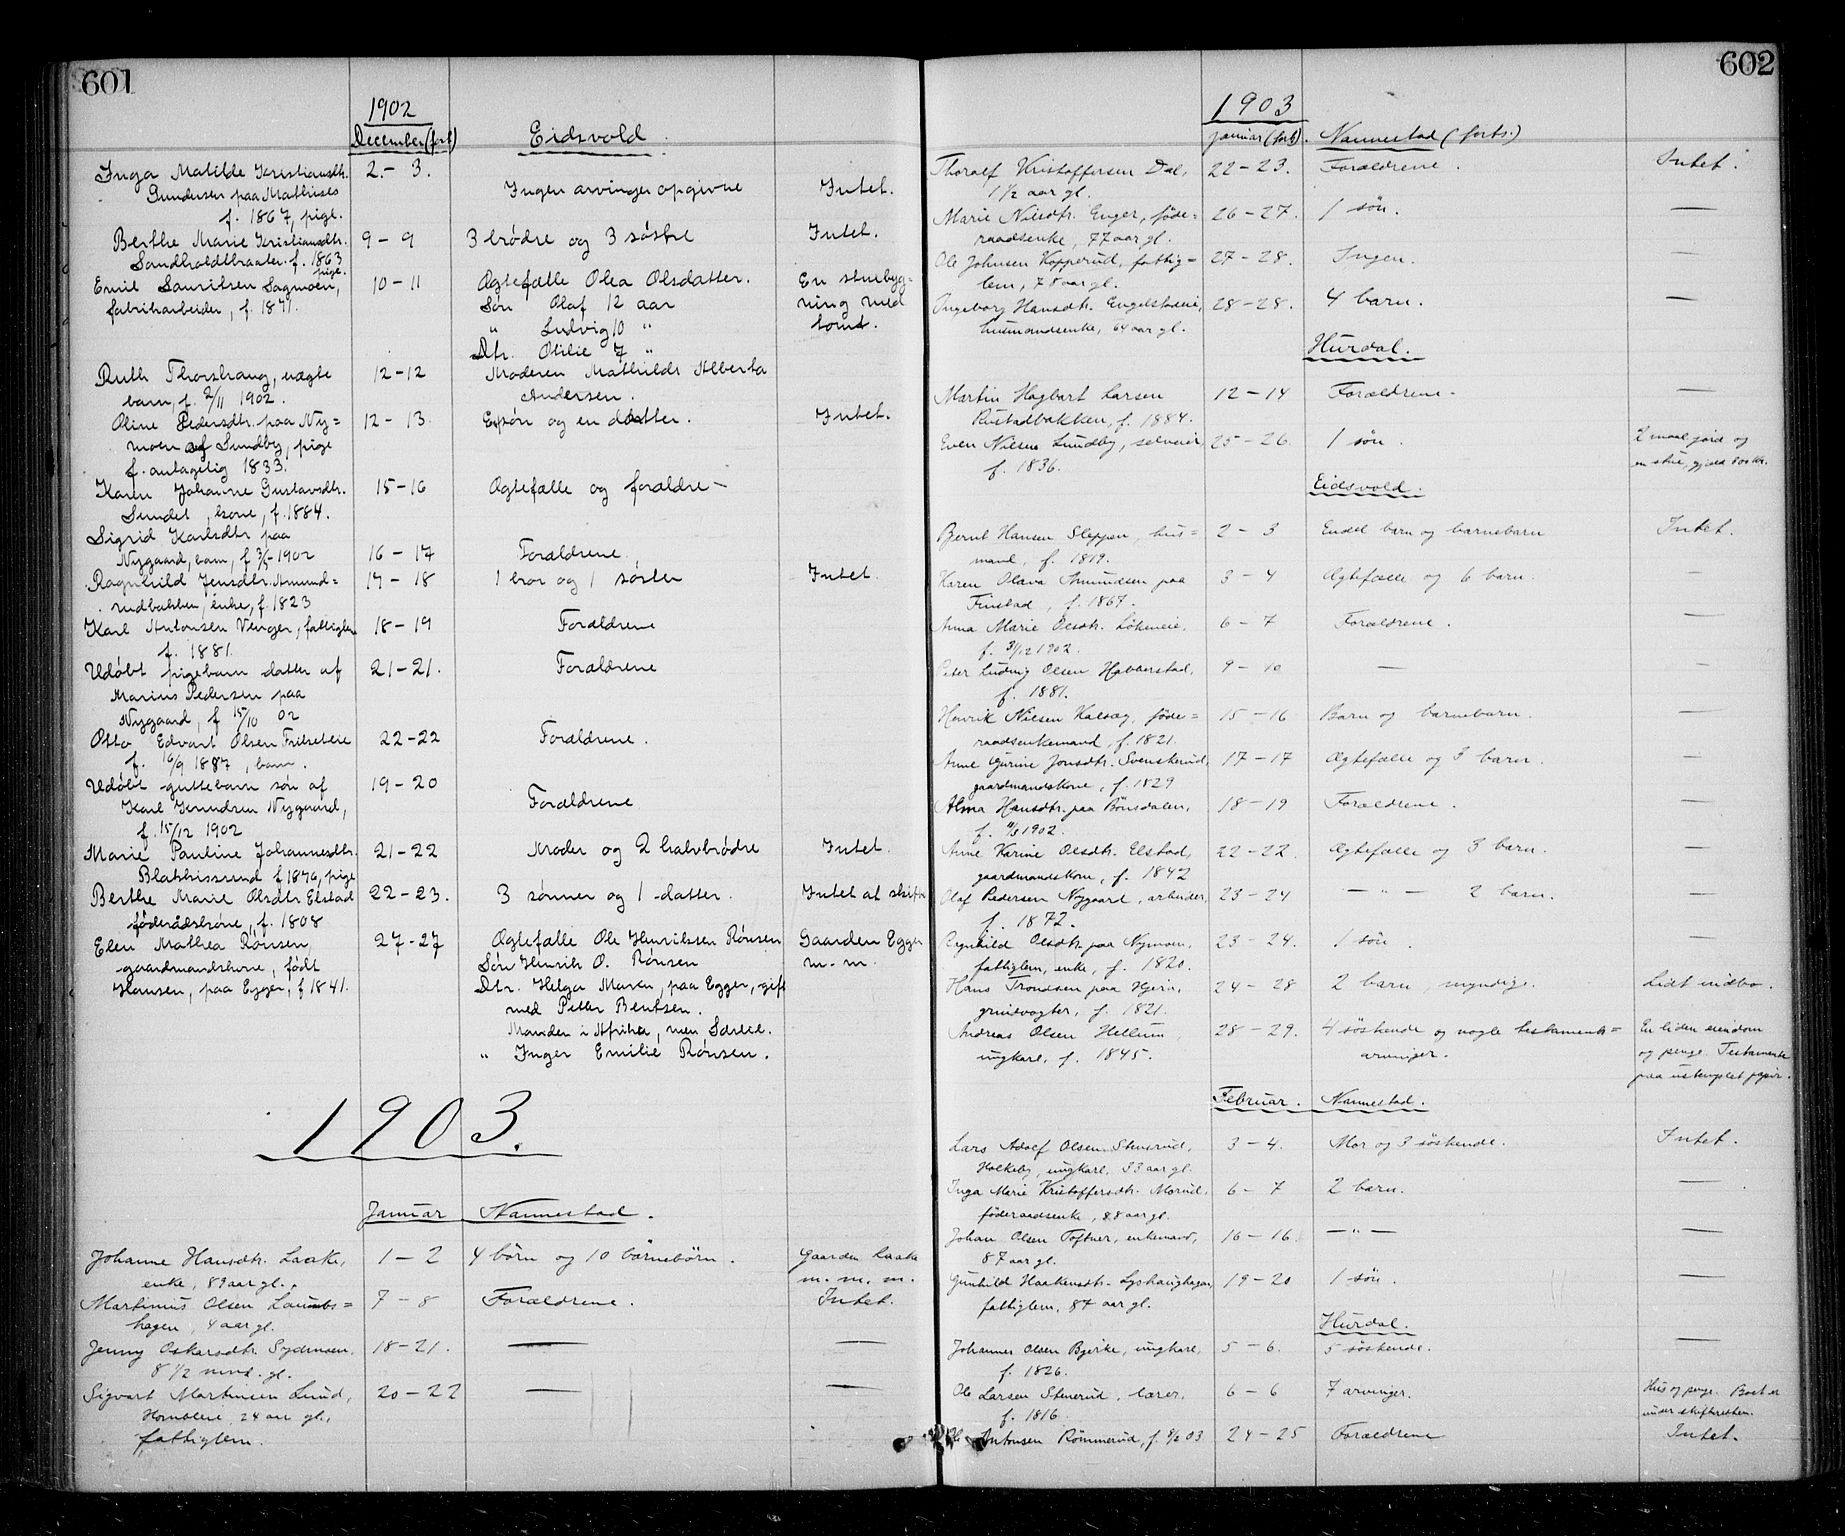 601
1902
December (fort) Eidsvold
Inga Matilde Kristiansdtr. 2.- 3.
Gundersen paa Mathises Ingen arvinger opgivne Intet.
f. 1867, pige.
Berthe Marie Kristiansdtr. 9 - 9 3 brødre og 3 søstre Intet.
f. 1863
pige.
Emil Lauritsen Sagmoen, 10 - 11 Ægtefælle Olea Olsdatter. En stuebyg=
fabrikarbeider, f. 1871. Søn Olaf 12 aar ning med
" Ludvig 10 " tomt.
Dtr. Otilie 7 "
Ruth Thorshaug, uægte 12-12 Moderen Mathilde Alberta
barn, f. 2/11 1902. Andersen.
Oline Pedersdtr. paa Ny= 12 - 13. En søn og en datter. Intet.
moen af Sundby, pige
f. antagelig 1833.
Karen Johanne Gustavsdtr. 15-16 Ægtefælle og forældre -
Sundet, kone, f. 1884.
Sigrid Karlsdtr paa
Nygaard, barn, f. 3/5 1902 16 - 17 Forældrene.
Ragnhild Jensdtr. Amund= 17 - 18 1 bror og 1 søster Intet.
rudbakken, enke, f. 1823
Karl Antonsen Venger, fattiglem 18-19 Forældrene
f. 1881.
Udøbt pigebarn datter af 21-21. Forældrene
Marius Pedersen paa
Nygaard, f 15/10 02
Otto Edvart Olsen 22-22 Forældrene.
f. 16/9 1887, barn.
Udøbt guttebarn søn af 19-20
Karl Knudsen Nygaard, Forældrene
f. 15/12 1902
Marie Pauline Johannesdtr. 21-22 Moder og 2 halvbrødre Intet.
f 1876, pige
Berthe Marie Olsdtr Elstad 22-23. 3 sønner og 1 datter. Intet at skifte
føderådskone, f. 1808
Elen Mathea Rønsen, 27-27 Ægtefælle Ole Henriksen Rønsen Gaarden Egger
gaardmandskone, født Søn Henrik O. Rønsen m. m.
Hansen, paa Egger, f 1841. Dtr. Helga Maren, paa Egger, gift
med Petter Bentsen.
Manden i Afrika,
" Inger Emilie Rønsen.
1903.
Januar Nannestad.
Johanne Hansdtr. Laake, 1 - 2 4 børn og 10 børnebørn. Gaarden Laake
enke, 89 aar gl. m. m. m.
Martinius Olsen Laumbs= 7 - 8 Forældrene. Intet.
hagen, 4 aar gl.
Jenny Oskarsdtr. Sydmoen, 18-21. — —
8 1/2 mnd. gl.
Sigvart Martinsen Lund, 20-22 — —
24 aar gl.,
fattiglem.
602
1903
Januar (forts). Nannestad (forts.)
Thoralf Kristoffersen Dal, 22-23. Forældrene. Intet.
1 1/2 aar gl.
Marie Nilsdtr. Enger, føde= 26-27. 1 søn. —
raadsenke, 77 aar gl.
Ole Johnsen Kopperud, fattig= 27-28. Ingen. —
lem, 78 aar gl.
Ingeborg Hansdtr. Engelstadeie, 28-28. 4 barn. —
husmandsenke, 64 aar gl.
Hurdal.
Martin Hagbart Larsen 12-14 Forældrene. —
Rustadbakken, f. 1884.
Even Nilsen Lundby, selveier 25-26. 1 søn. 2 maal jord og
f. 1836. en stue, gjæld 800 kr.
Eidsvold.
Bernt Hansen Sleppen, hus= 2 - 3 Endel barn og barnebarn Intet.
mand, f. 1819.
Karen Olava Amundsen paa 3 - 4 Ægtefælle og 6 barn. —
Finstad, f. 1867.
Anna Marie Olsdtr. Løkeneie, 6 - 7 Forældrene. —
f. 3/12 1902.
Peter Ludvig Olsen Habberstad, 9 - 10 — —
f. 1881.
Henrik Nilsen, føde= 15-16 Barn og barnebarn. —
raadsenkemand, f. 1821.
Anne Gurine Jonsdtr. Svenskerud, 17-17 Ægtefælle og 3 barn. —
gaardmandskone, f. 1829
Alma Hansdtr. paa Bønsdalen, 18-19 Forældrene. —
f. 1902.
Anne Karine Olsdtr. Elstad, 22-22. Ægtefælle og 3 barn. —
gaardmandskone, f. 1842
Olaf Pedersen Nygaard, arbeider, 23-24 — " — 2 barn. —
f. 1872.
Ragnhild Olsdtr. paa Nymoen, 23-24. 1 søn. —
fattiglem, enke, f. 1820.
Hans Trondsen paa Hjera, 24-28 2 barn, myndige. Lidt indbo.
grindvogter, f. 1821.
Andreas Olsen Hellum, 28-29. 4 søskende og nogle testaments= En liden eiendom
ungkarl, f. 1845. arvinger. og penge. Testamente
paa ustemplet papir.
Februar. Nannestad.
Lars Adolf Olsen Stenerud, 3-4. Mor og 3 søskende. Intet.
Holkeby, ungkarl, 33 aar gl.
Inga Marie Kristoffersdtr. Morud, 6 - 7 2 barn. —
føderaadsenke, 88 aar gl.
Johan Olsen Toftner, enkemand, 16-16. — " — —
87 aar gl.
Gunhild Haakensdtr. Lyshaughagen, 19-20 1 søn. —
fattiglem, 87 aar gl.
Hurdal.
Johannes Olsen Bjerke, ungkarl, 5 - 6. 5 søskende. —
f. 1826.
Ole Larsen Stenerud, lærer, 6 - 6 7 arvinger. Hus og penge. Boet er
f. 1816. under skifteretten.
Antonsen Rømmerud, f. 9/2 03 24-25 Forældrene Intet.